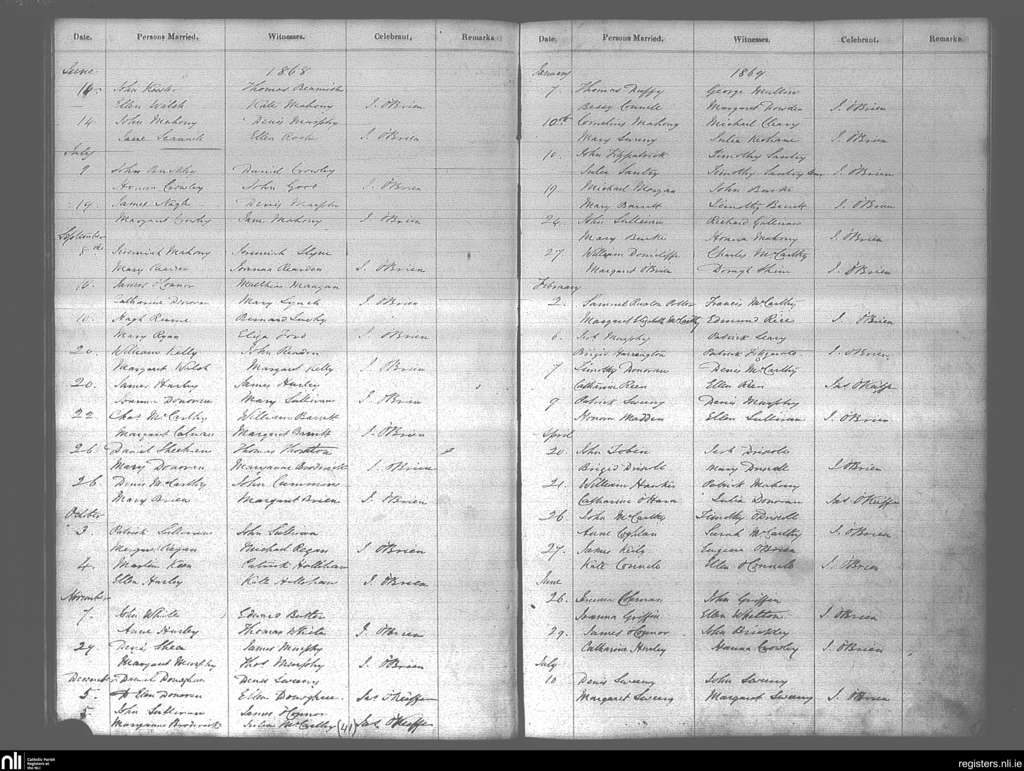 Date. Persons Married. Witnesses. Celebrant. Remarks.
June 1868
Thomas Beamish
Ellen Walsh Kate Mahony J. O'Brien
14 John Mahony Denis Murphy
Ellen J. O'Brien
July
9 John Buckley Daniel Crowley
Honora Crowley John Good J. O'Brien
19 James Nagle Denis Murphy
Margaret Crowley Jane Mahony J. O'Brien
September
8 Jeremiah Mahony Jeremiah Slyne
Mary Reardon Reardon J. O'Brien
16 James O'Connor Matthew Mangan
Catharine Donovan Mary Lynch J. O'Brien
10 Hugh Bernard
Mary Ryan Eliza Ford J. O'Brien
20 William Kelly John Reardon
Margaret Walsh Margaret Kelly J. O'Brien
20 James Hurley James Hurley
Joanna Donovan Mary Sullivan J. O'Brien
22 Chas McCarthy William Barrett
Margaret Margaret Barrett J. O'Brien
26 Daniel Sheehan Thomas
Mary Donovan Maryanne Broderick J. O'Brien
26 Denis McCarthy John Cummins
Mary Brien Margaret Brien J. O'Brien
October
3 Patrick Sullivan John Sullivan
Regan Michael Regan J. O'Brien
4 Martin Keen Patrick Hallahan
Ellen Hurley Kate Hallahan J. O'Brien
November
7 John White Edward Butler
Anne Hurley Thomas White J. O'Brien
29 Denis Shea James Murphy
Margaret Murphy Thos Murphy J. O'Brien
December Daniel Donoghue Denis Sweeny
5 Ellen Donovan Ellen Donoghue Jas O'Keeffe
5 John Sullivan James O'Connor
Maryanne Broderick Julia McCarthy (41) Jas O'Keeffe
Date. Persons Married. Witnesses. Celebrant. Remarks.
January 1869
7 Thomas Duffy George Mullow
Bessy Connell Margaret Dowden J. O'Brien
10th Cornelius Mahony Michael Cleary
Mary Sweny Julia Keohane J. O'Brien
10 John Fitzpatrick Timothy Santry
Julia Santry Timothy Santry Jun J. O'Brien
19 Michael Morgan John Burke
Mary Barrett Timothy Barrett J. O'Brien
24 John Sullivan Richard Sullivan
Mary Burke Honora Mahony J. O'Brien
27 William Charles McCarthy
Margaret O'Brien J. O'Brien
February
2 Samuel Francis McCarthy
Margaret Elizabeth McCarthy Edmund Rice J. O'Brien
6 Jer Murphy Patrick Leary
Brigid Harrington Patrick Fitzgerald J. O'Brien
7 Timothy Donovan Denis McCarthy
Catherine Reen Ellen Reen Jas O'Keeffe
9 Patrick Sweny Denis Murphy
Honora Madden Ellen Sullivan J. O'Brien
April
20 John Tobin Jer Driscoll
Brigid Driscoll Mary Driscoll J. O'Brien
21 William Hawkes Patrick Mahony
Catharine O'Hara Julia Donovan Jas O'Keeffe
26 John McCarthy Timothy O'Driscoll
Anne Coghlan Sarah McCarthy J. O'Brien
27 James Eugene O'Brien
Kate Connell Ellen O'Connell J. O'Brien
June
26 John Griffin
Joanna Griffin Ellen Whelton J. O'Brien
29 James O'Connor John
Catharine Hurley Hanna Crowley J. O'Brien
July
10 Denis Sweny John Sweny
Margaret Sweny Margaret Sweny J. O'Brien
nli Catholic Parish Registers at the NLI
registers.nli.ie